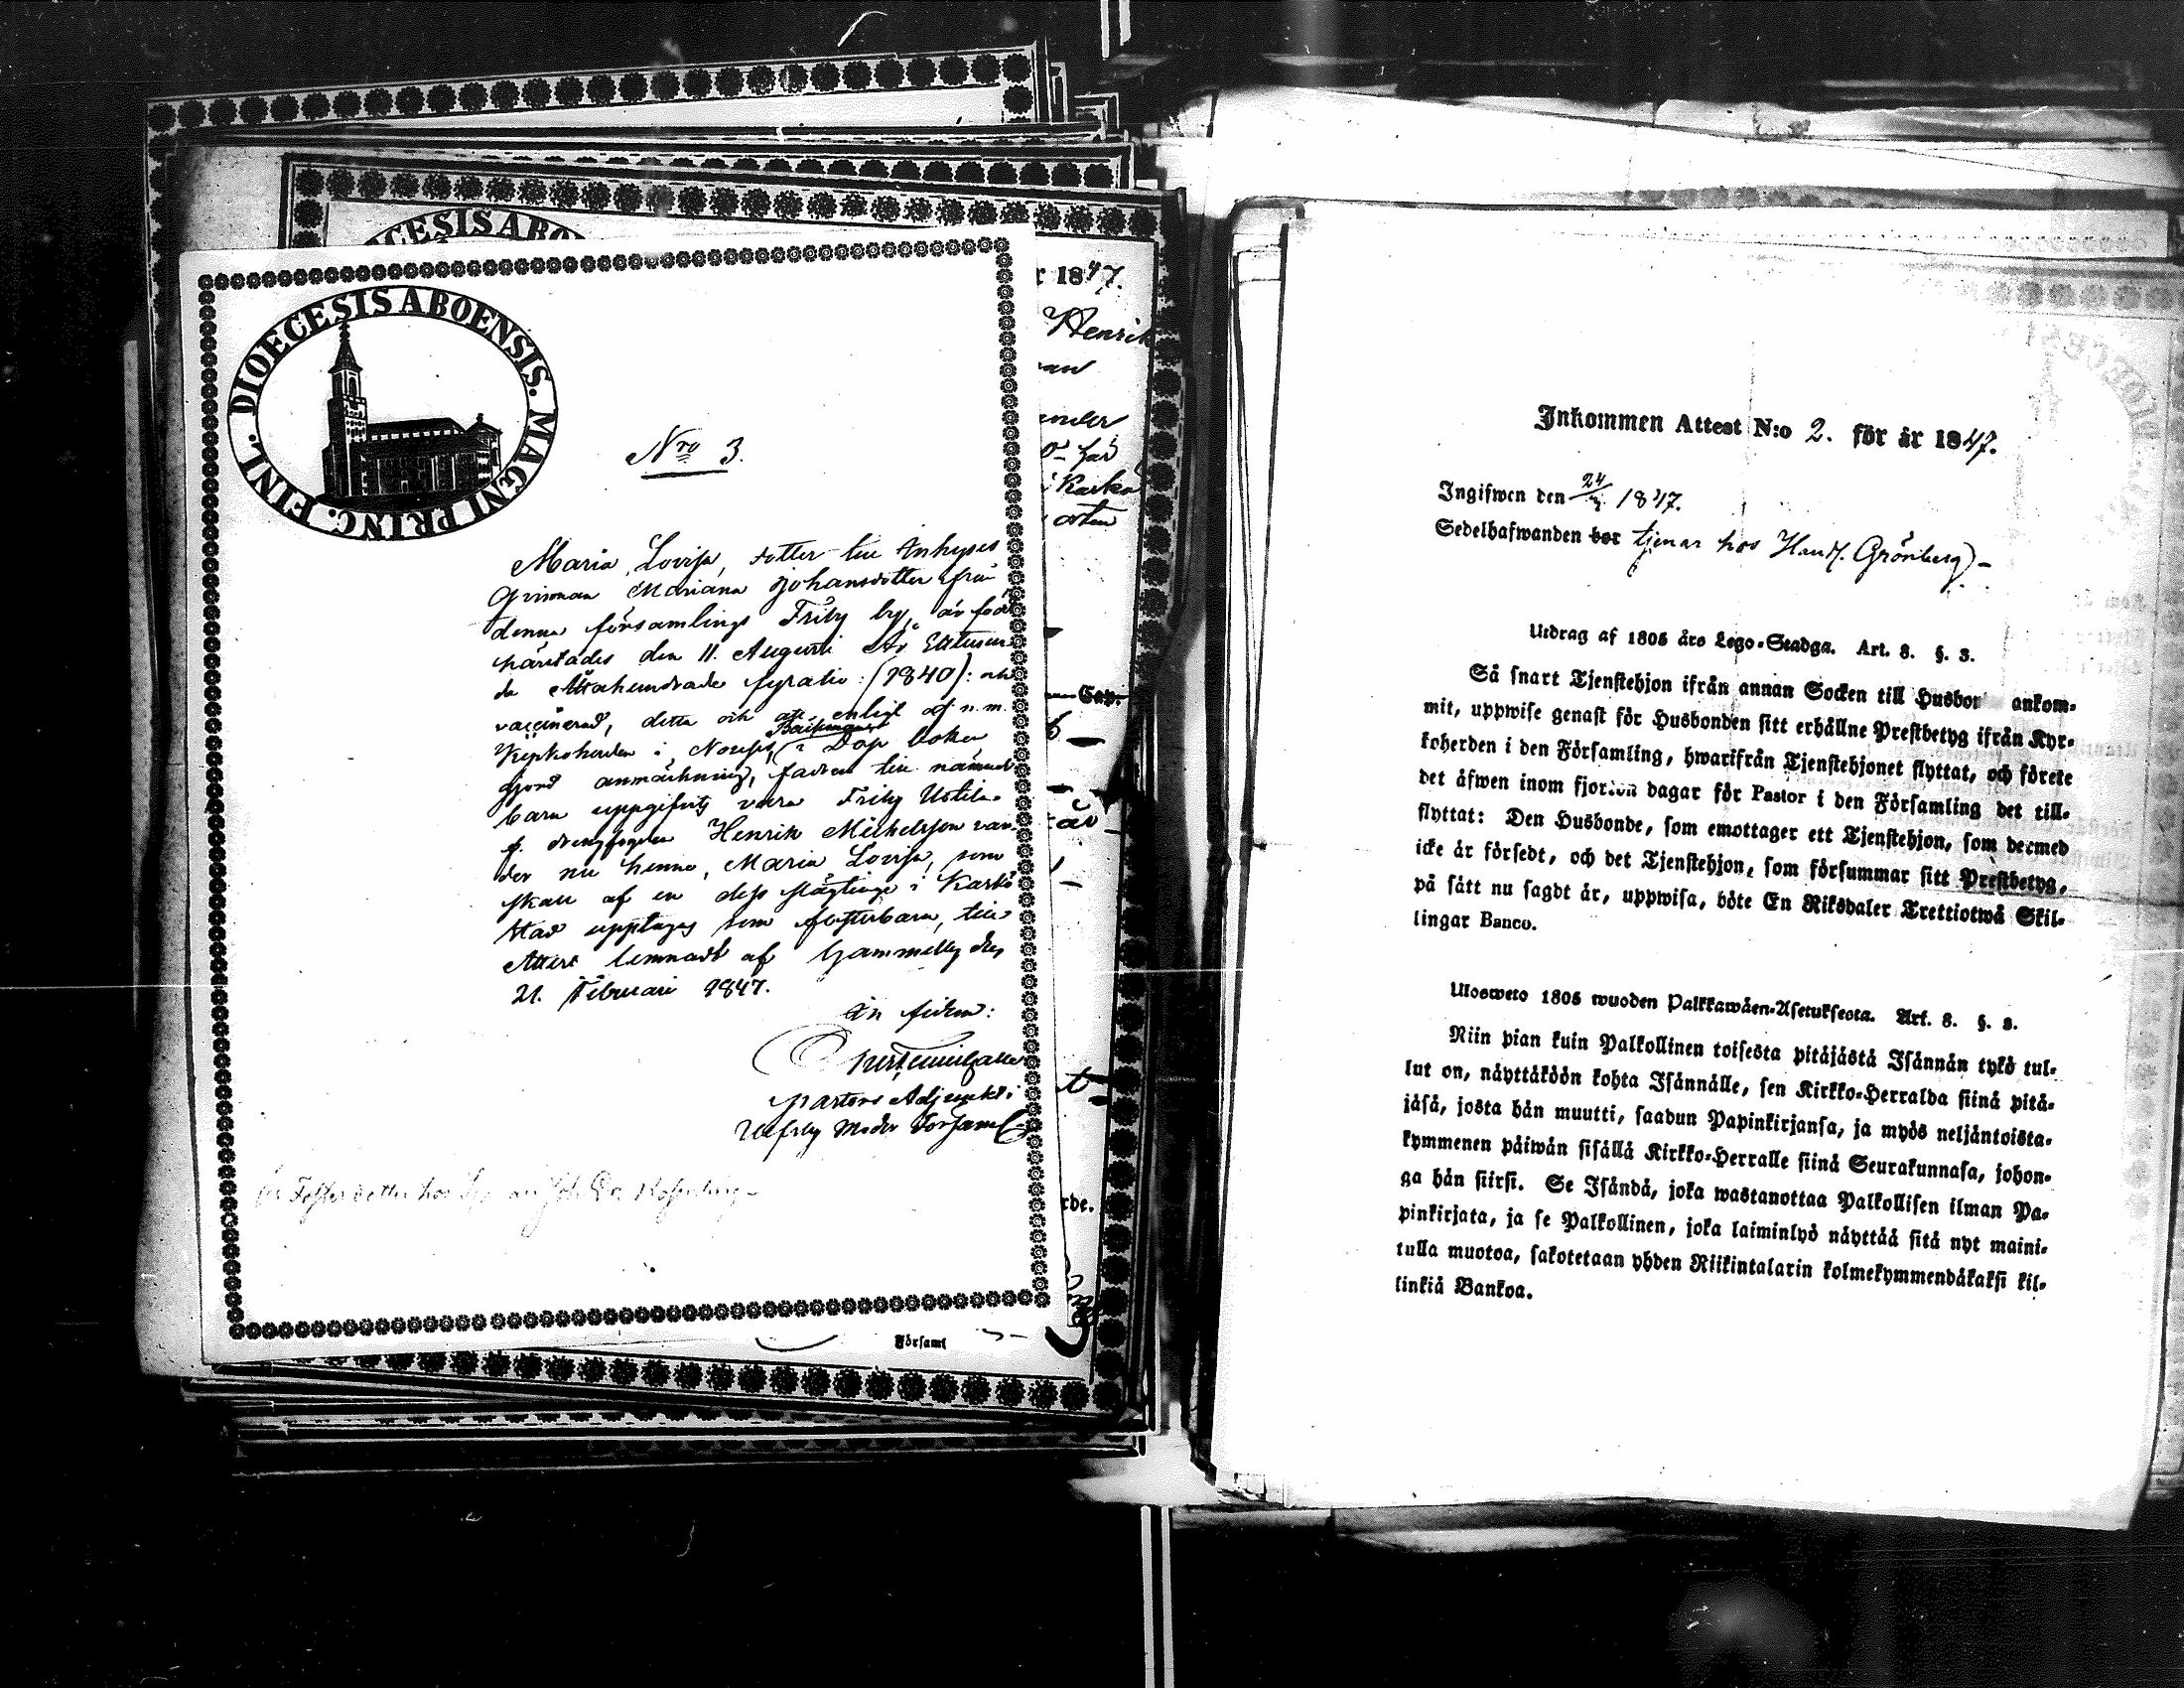 DIOECESIS ABO
DIOECESIS ABOENSIS. MAGNI PRINC. FINL.
Nro 3.
Maria Lovisa, dotter till Inhyses
qvinnan Mariana Johansdotter från
denna församlings Frily by, är född
härstädes den 11. Augusti År Ettusen
de Åttahundrade fyratio: (1840): och
vaccinerad, detta och att enligt af n. m.
Kyrkoherden i Nousis, Bäckman i Dop boken
gjord anmärkning, fadren till nämnde
barn uppgifvits vara Frily Ustila
f. drengfogden Henrik Mickelsson var
der nu henne, Maria Lovisa, som
skall af en dess slägtinge i Karls
stad upptages som fosterbarn, till
Attest lemnadt af Gammelby den
21. Februari 1847.
In fidem:
Pastors Adjunkt i
Ulfsby Moder Församl
är Fosterdotter hos
r 1847.
Henrik
Cap.
rde.
Församl
Inkommen Attest N:o 2. för år 1847.
Ingifwen den 24/ 1847.
Sedelhafwanden bor tjenar hos Handl. Grönberg –
Utdrag af 1805 års Lego-Stadga. Art. 8. §. 3.
Så snart Tjenstehjon ifrån annan Socken till Husbon ankom-
mit, uppwise genast för Husbonden sitt erhållne Prestbetyg ifrån Kyr-
koherden i den Församling, hwarifrån Tjenstehjonet flyttat, och förete
det äfwen inom fjorton dagar för Pastor i den Församling det till-
flyttat: Den Husbonde, som emottager ett Tjenstehjon, som dermed
icke är försedt, och det Tjenstehjon, som försummar sitt Prestbetyg,
på sätt nu sagdt är, uppwisa, böte En Riksdaler Trettiotwå Skil-
lingar Banco.
Ulosweto 1805 wuoden Palkkawäen-Asetuksesta. Art. 8. §. 3.
Niin pian kuin Palkollinen toisesta pitäjästä Isännän tykö tul-
lut on, näyttäköön kohta Isännälle, sen Kirkko-Herralda siinä pitä-
jäsä, josta hän muutti, saadun Papinkirjansa, ja myös neljäntoista-
kymmenen päiwän sisällä Kirkko-Herralle siinä Seurakunnasa, johon-
ga hän siirsi. Se Isändä, joka wastanottaa Palkollisen ilman Pa-
pinkirjata, ja se Palkollinen, joka laiminlyö näyttää sitä nyt maini-
tulla muotoa, sakotetaan yhden Riikintalarin kolmekymmendäkaksi kil-
linkiä Bankoa.